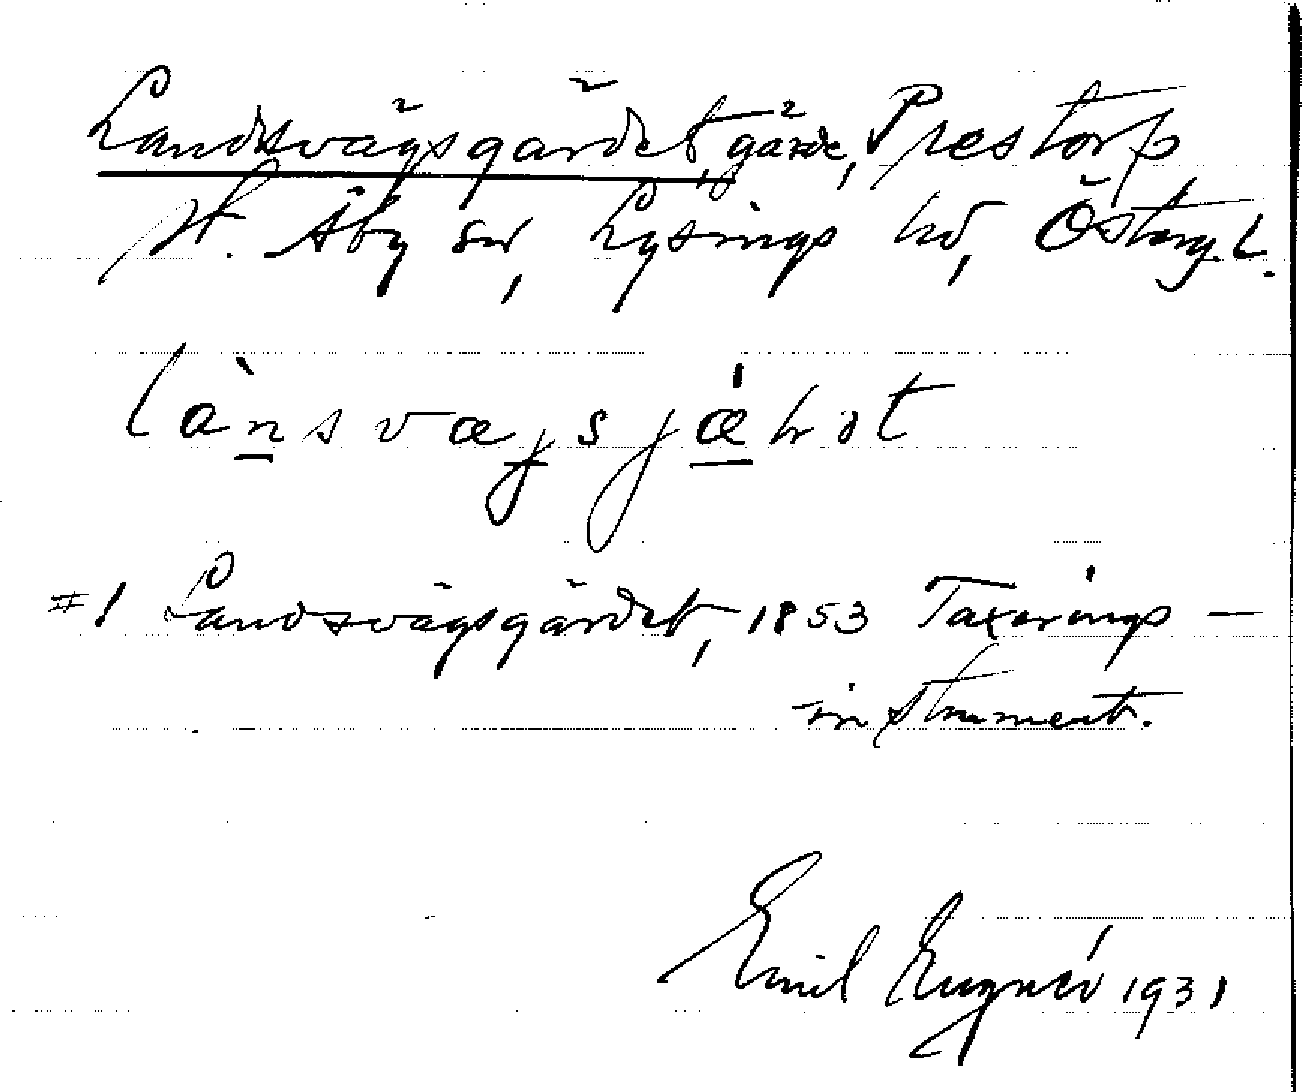 Landsvägsgärdet, gärde, Prestorp
V. Åby sn, Lysings hd, Östergl.
lànsvægsjǽhot
#1 Landsvägsgärdet, 1853 Taxerings-
instrument.
Emil 1931